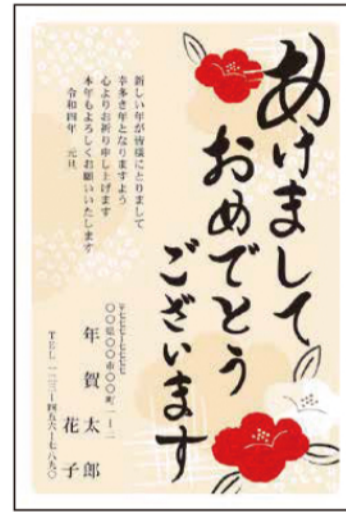 あけまして
おめでとう
ございます
新しい年が皆様にとりまして
幸多き年となりますよう
心よりお祈り申し上げます
本年もよろしくお願いいたします
令和四年　元旦
〒七七七-七七七七
〇〇県〇〇市〇〇町一-二
年賀太郎
花子
TEL 一二三-四五六-七八九〇